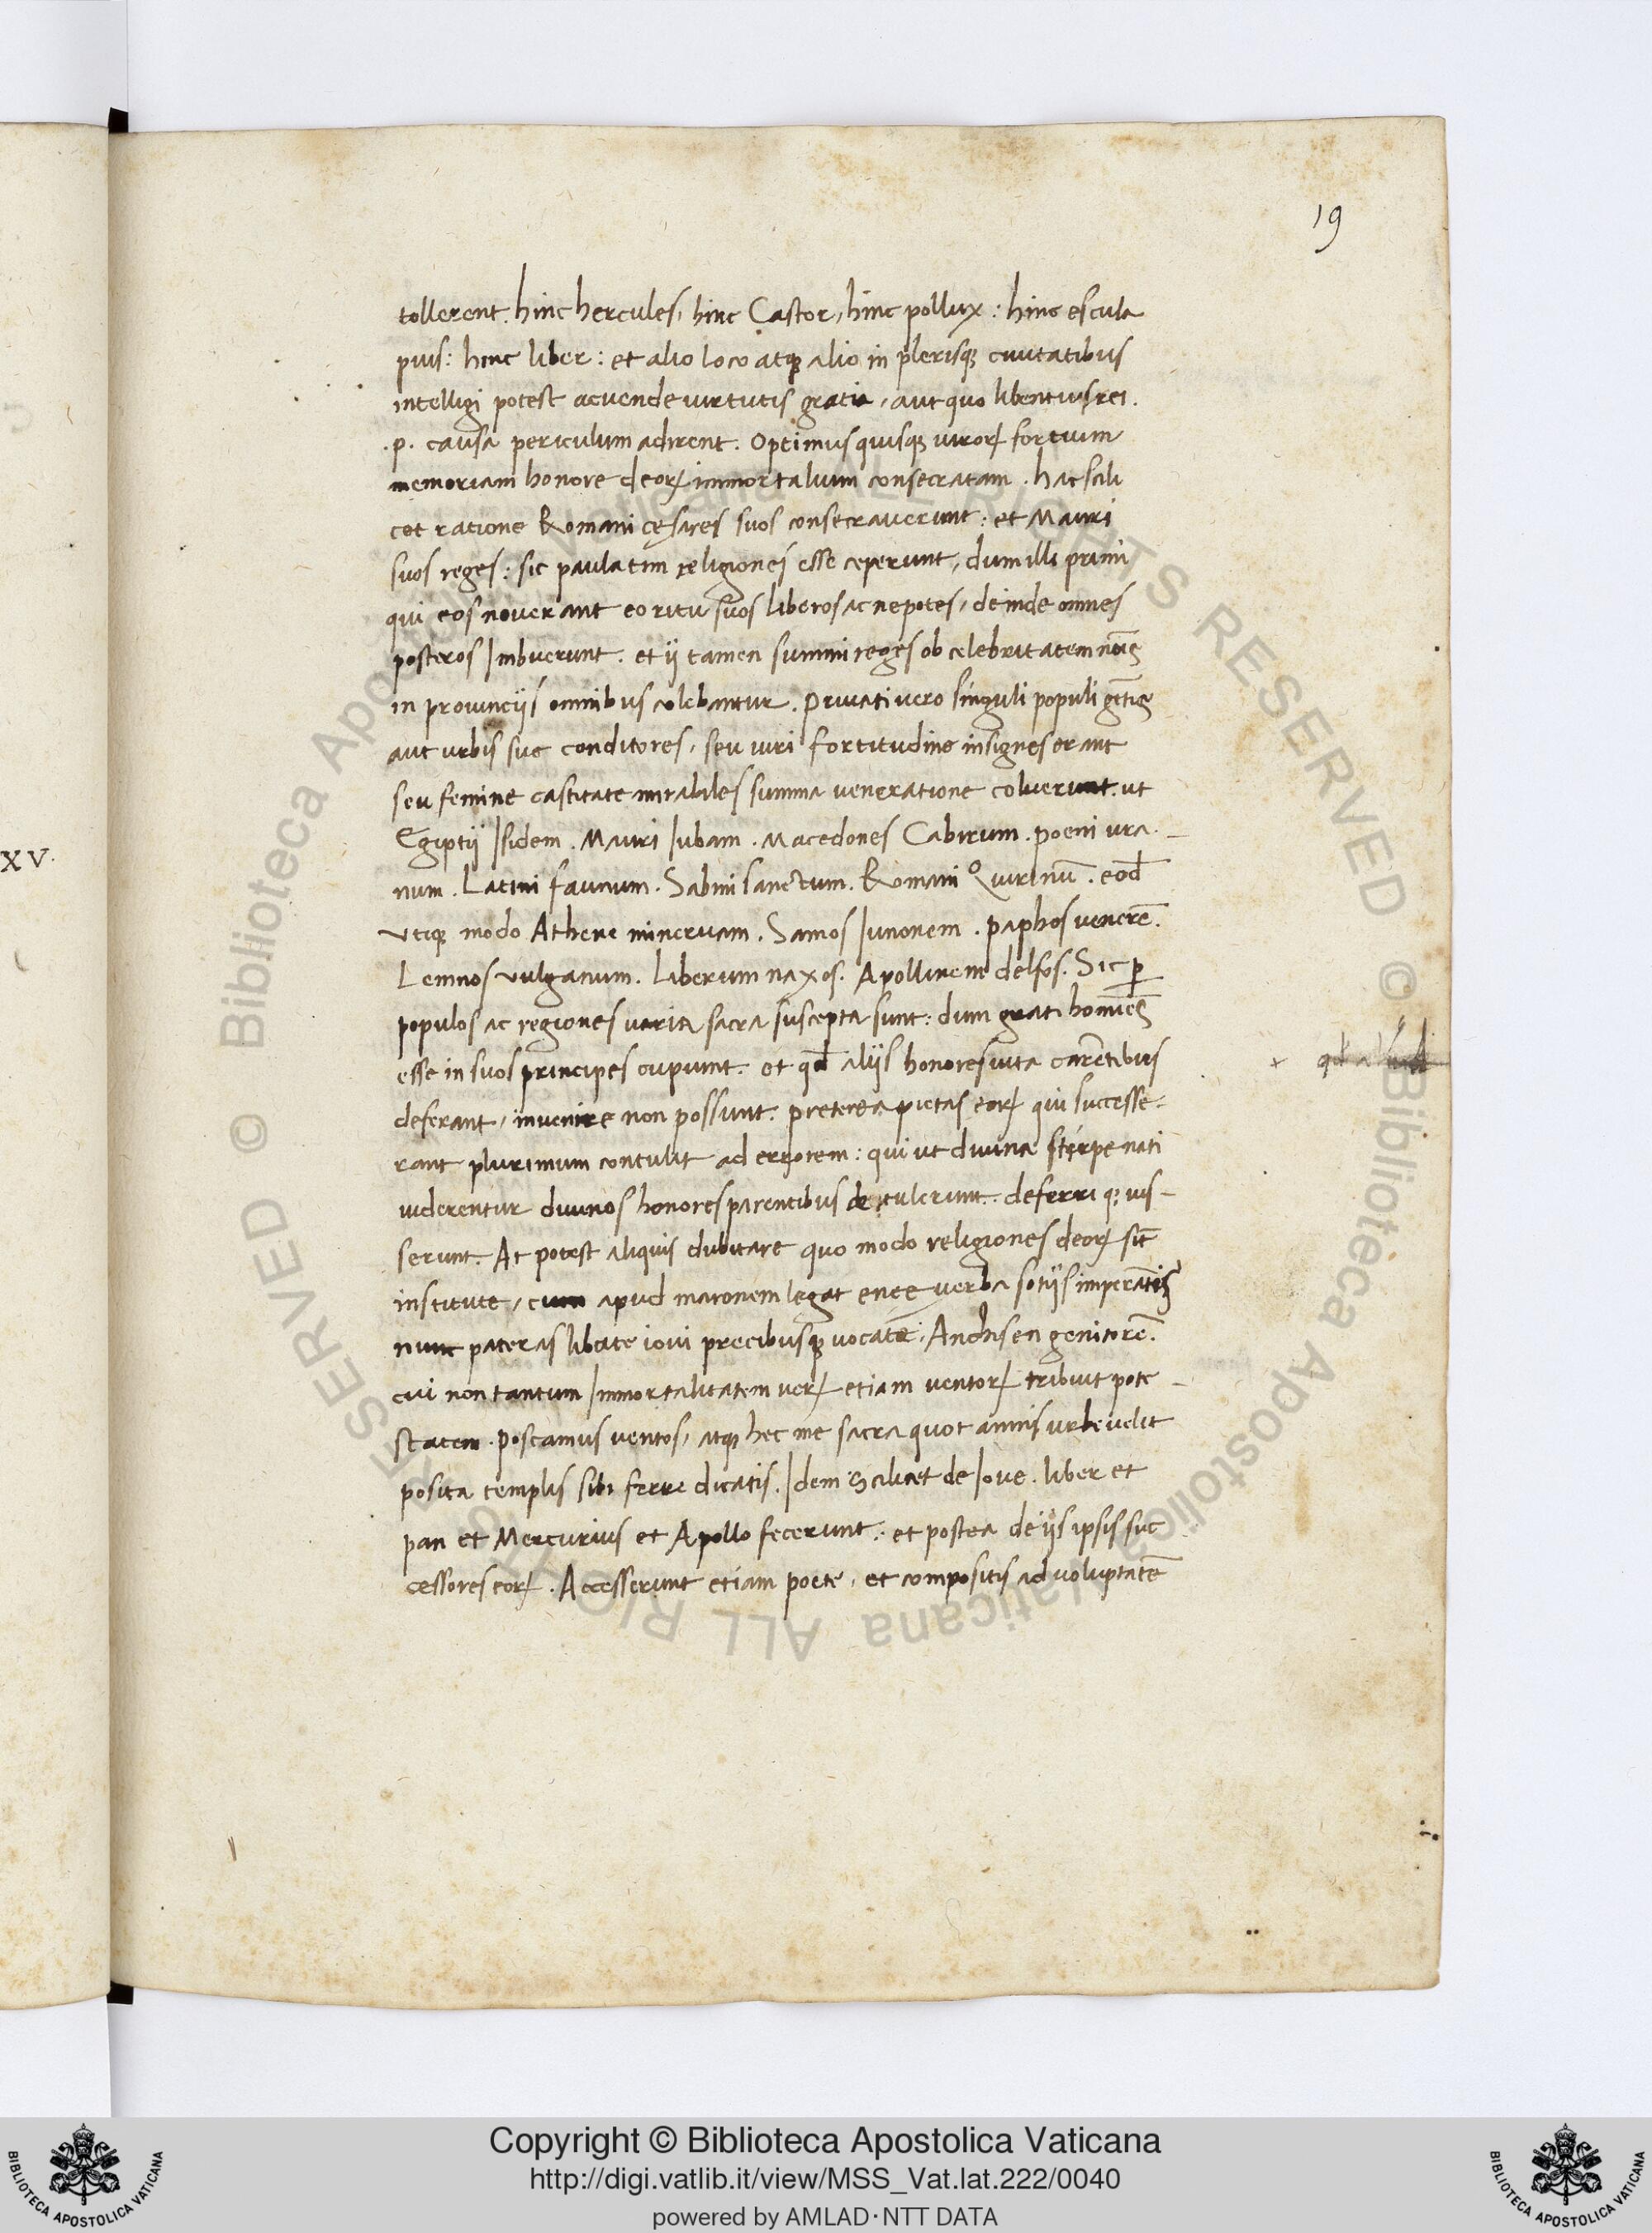 19
tollerent. hinc hercules, hinc Castor, hinc pollux: hinc escula
pius: hinc liber: et alio loco atqꝫ alio in plerisqꝫ ciuitatibus
intelligi potest acuende uirtutis gratia, aut quo libentius rei.
.p. causa periculum adirent. Optimus quisqꝫ uiroꝝ fortium
memoriam honore deoꝝ immortalium consecratam. hac scili
cet ratione Romani cęsares suos consecrauerunt: et Mauri
suos reges: sic paulatim religiones esse ceperunt, dum illi primi
qui eos nouerant eo ritu suos liberos ac nepotes, deinde omnes
posteros Imbuerunt. et ij tamen summi reges ob celebritatem
in prouincijs omnibus colebantur. Priuati uero singuli populi
aut urbis sue conditores, seu uiri fortitudine insignes erant
seu femine castitate mirabiles summa ueneratione coluerunt. ut
Egiptij Isidem. Mauri Iubam. Macedones Cabirum. poeni ura-
num. Latini faunum. Sabini sanctum. Romani Quirinū. eod̄
utiqꝫ modo Athene mineruam. Samos Iunonem. paphos venerē.
Lemnos vulganum. Liberum naxos. Apollinem delfos. Sic ꝑ
populos ac regiones uaria sacra suscepta sunt: dum grati homīes
esse in suos principes cupiunt. et qd̄ alijs honores uita carētibus
deferant, inuenire non possunt. preterea pietas eoꝝ qui successe-
rant plurimum contulit ad errorem: qui ut diuina stirpe nati
uiderentur diuinos honores parentibus detulerunt. deferri qꝫ ius-
serunt. At potest aliquis dubitare quo modo religiones deoꝝ sīt
institute, cum apud maronem legat enee uerba sotijs imperātis
nunc pateras libate ioui precibusqꝫ uocate: Anchisen genitorē.
cui non tantum Immortalitatem ueꝝ etiam uentoꝝ tribuit pote-
statem. poscamus uentos, atqꝫ hec me sacra quot annis urbe uelit
posita templis sibi ferre dicatis. Idem scilicet de Ioue. liber et
pan et Mercurius et Apollo fecerunt: et postea de ijs ipsis suc
cessores eoꝝ. Accesserunt etiam poete, et compositis ad voluptatē
XV.
© Biblioteca Apostolica Vaticana ALL RIGHTS RESERVED
© Biblioteca Apostolica Vaticana ALL RIGHTS RESERVED
Copyright © Biblioteca Apostolica Vaticana
http://digi.vatlib.it/view/MSS_Vat.lat.222/0040
powered by AMLAD·NTT DATA
BIBLIOTECA APOSTOLICA VATICANA
BIBLIOTECA APOSTOLICA VATICANA